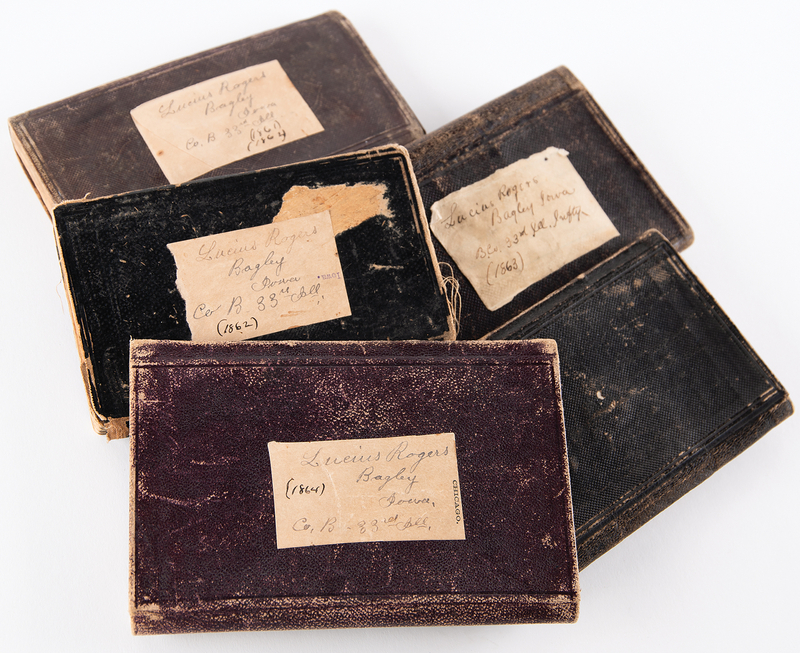 Lucius Rogers
Bagley
Iowa
Co. B 33rd Ill
(1861)
(1862)
Lucius Rogers
Bagley Iowa
33rd Ill. Inftry
(1863)
Lucius Rogers
Bagley
Iowa
Co B 33rd Ill.
(1862)
Lucius Rogers
(1864) Bagley
Iowa,
Co, B - 33rd Ill,
CHICAGO.